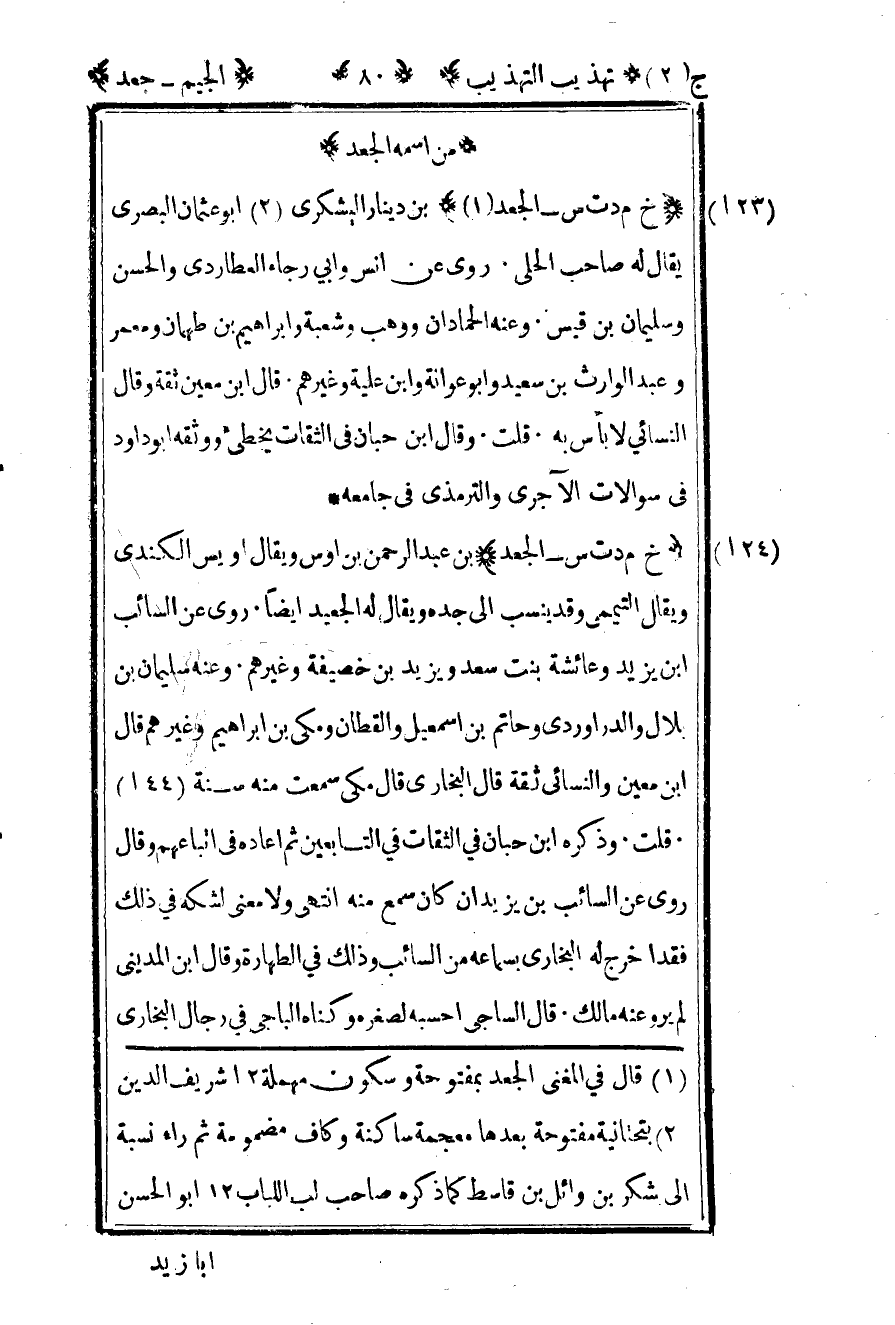 ج(٢) * تهذيب التهذيب * * ٨٠ * * الجيم ـ جعد *
* من اسمه الجعد *
(١٢٣) * خ م د ت س ـ الجعد (١) * بن دينار اليشكرى (٢) ابو عثمان البصرى
يقال له صاحب الحلى ٠ روى عن ٠ انس وابي رجاء العطاردى والحسن
وسليمان بن قيس ٠ وعنه الحمادان ووهب وشعبة وابراهيم بن طهمان ومعمر
و عبد الوارث بن سعيد وابو عوانة وابن علية وغيرهم ٠ قال ابن معين ثقة وقال
النسائي لا بأس به ٠ قلت ٠ وقال ابن حبان فى الثقات يخطىء ووثقه ابو داود
فى سوالات الآجرى والترمذى فى جامعه *
(١٢٤) * خ م د ت س ـ الجعد * بن عبد الرحمن بن اوس ويقال اويس الكندى
ويقال التيمى وقد ينسب الى جده ويقال له الجعيد ايضاً ٠ روى عن السائب
ابن يزيد وعائشة بنت سعد ويزيد بن خصيفة وغيرهم ٠ وعنه سليمان بن
بلال والدراوردى وحاتم بن اسمعيل والقطان ومكى بن ابراهيم وغيرهم قال
ابن معين والنسائى ثقة قال البخارى قال مكى سمعت منه سنة (١٤٤)
٠ قلت ٠ وذكره ابن حبان في الثقات في التابعين ثم اعاده فى اتباعهم وقال
روى عن السائب بن يزيد ان كان سمع منه انتهى ولا معنى لشكه في ذلك
فقد اخرج له البخارى بسماعه من السائب وذلك في الطهارة وقال ابن المدينى
لم يرو عنه مالك ٠ قال الساجى احسبه لصغره وكناه الباجى في رجال البخارى
(١) قال في المغنى الجعد بمفتوحة وسكون مهملة ١٢ شريف الدين
٢) بتحتانية مفتوحة بعدها معجمة ساكنة وكاف مضمومة ثم راء نسبة
الى شكر بن وائل بن قاسط كما ذكره صاحب لب اللباب ١٢ ابو الحسن
ابا زيد